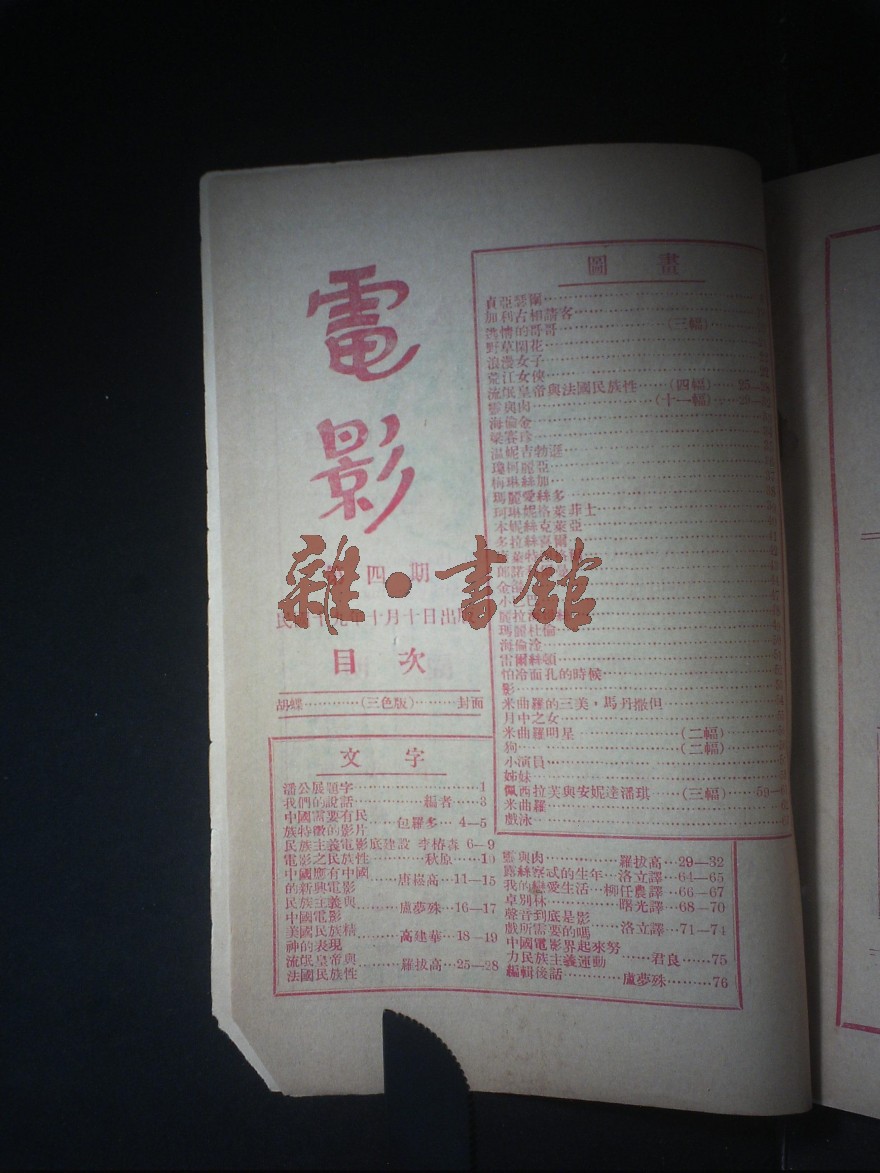 電影
四期
十月十日出
目次
胡蝶…………(三色版)………封面
圖畫
貞亞瑟爾
加利古柏請客
浪漫女子
荒江女俠
流氓皇帝與法國民族性……(四幅)
靈與肉……(十一幅)
海倫金
梁賽珍
溫妮吉勃遜
瓊柯麗亞
梅琳絲加
瑪麗愛絲多
珂琳妮格萊菲士
本妮絲克萊亞
多拉絲喜爾
瑪麗杜倫
海倫淦
雷爾絲頓
怕冷面孔的時候
影
米曲羅的三美,馬丹撒但
月中之女
米曲羅明星……(二幅)
狗……(二幅)
小演員
姊妹
佩西拉芙與安妮達潘琪……(三幅)
米曲羅
戲泳
文字
潘公展題字……1
我們的說話……編者……3
中國需要有民
族特徵的影片……包羅多…4—5
民族主義電影底建設 李椿森 6—9
電影之民族性……秋原……10
中國應有中國
的新興電影……唐崧高…11—15
民族主義與
中國電影……盧夢殊…16—17
美國民族精
神的表現……高建華…18—19
流氓皇帝與
法國民族性……羅拔高…25—28
靈與肉……羅拔高…29—32
露絲察忒的生年…洛立譯…64—65
我的戀愛生活…柳任農譯…66—67
卓別林……曙光譯…68—70
聲音到底是影
戲所需要的嗎……洛立譯…71—74
中國電影界起來努
力民族主義運動……君良……75
編輯後話……盧夢殊……76
雜·書館